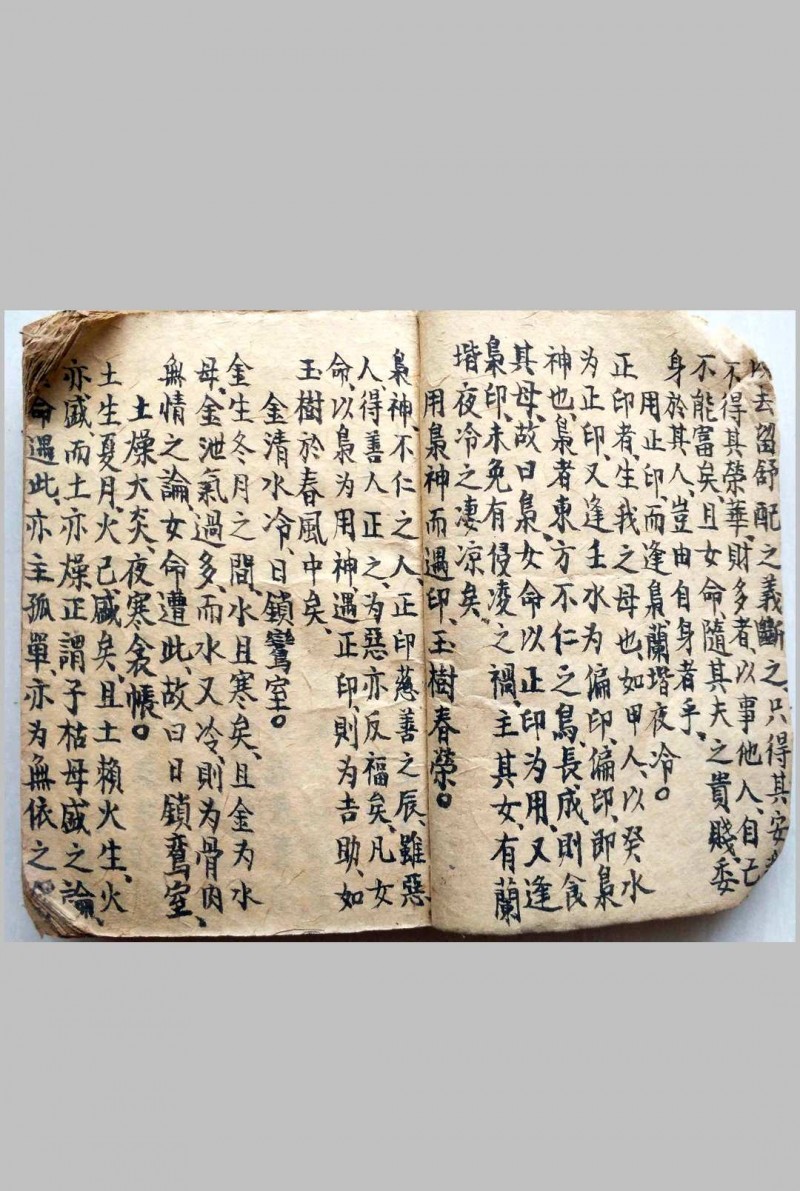 去留舒配之義斷之、只得其安
不得其榮華、財多者、以事他人、自己
不能富矣、且女命、隨其夫之貴賤、委
身於其人、豈由自身者乎、
用正印、而逢梟、蘭堦夜冷。
正印者、生我之母也、如甲人、以癸水
为正印、又逢壬水为偏印、偏印、即梟
神也、梟者東方不仁之鳥、長成則食
其母、故曰梟、女命以正印为用、又逢
梟印、未免有侵凌之禍、主其女、有蘭
堦夜冷之凄凉矣、
用梟神而遇印、玉樹春榮。
梟神、不仁之人、正印慈善之辰、雖惡
人、得善人正之、为惡亦反福矣、凡女
命、以梟为用神、遇正印、則为吉助、如
玉樹於春風中矣、
金清水冷、日鎖鸞室。
金生冬月之間、水且寒矣、且金为水
母、金泄氣過多、而水又冷、則为骨肉
無情之論、女命遭此、故曰日鎖鸞室、
土燥火炎、夜寒衾帳。
土生夏月、火已盛矣、且土賴火生、火
亦盛、而土亦燥、正謂子枯母盛之論、
命遇此、亦主孤單、亦为無依之